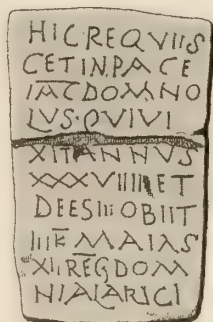 HIC REQVIIS
CETIN PACE
IAC̅DOMNO
LVS·QVIVI
XITANNVS
XXXVIIII ET
DEESIII OBIIT
III K̅ MAIAS
XII REG̅DOM
NIALARICI